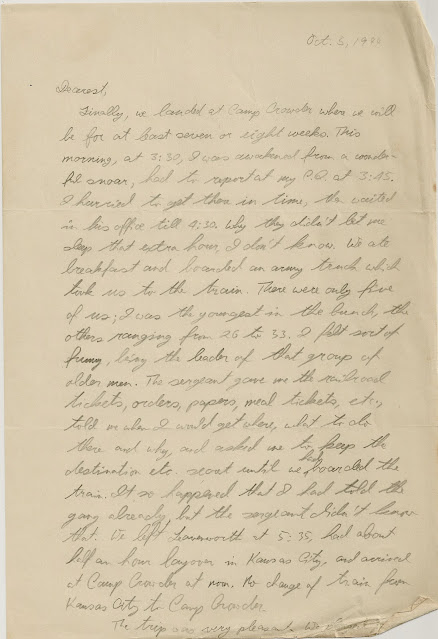 Oct. 3, 19
Dearest,
Finally, we landed at Camp Crowder where we will
be for at least seven or eight weeks. This
morning, at 3:30, I was awakened from a wonder-
ful snoar, had to report at my P.O. at 3:45.
I hurried to get there in time, then waited
in his office till 4:30. Why they didn't let me
sleep that extra hour, I don't know. We ate
breakfast and boarded an army truck which
took us to the train. There were only five
of us; I was the youngest in the bunch, the
others ranging from 26 to 33. I felt sort of
funny, being the leader of that group of
older men. The sergeant gave me the railroad
tickets, orders, papers, meal tickets, etc.,
told me when I would get where, what to do
there and why, and asked me to keep the
destination etc. secret until we had boarded the
train. It so happened that I had told the
gang already, but the sergeant didn't know
that. We left Leavenworth at 5:35, had about
half an hour layover in Kansas City, and arrived
at Camp Crowder at noon. No change of train from
Kansas City to Camp Crowder.
The trip was very pleasant. We